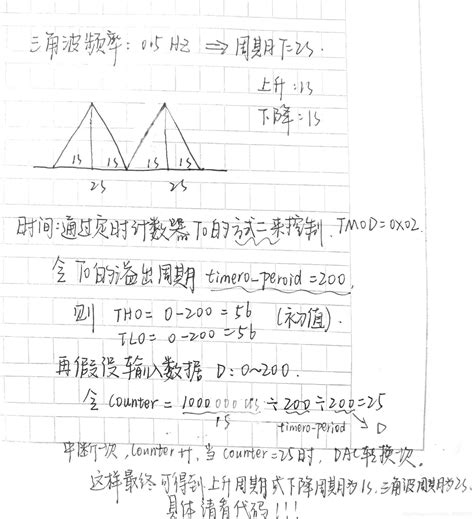 三角波频率: 0.5 HZ ⇒ 周期T=2s.
上升:1s
下降:1s
1s 1s 1s 1s
2s 2s
时间:通过定时计数器T0的方式二来控制, TMOD=0x02.
令T0的溢出周期 timer0-peroid=200,
则 TH0= 0-200=56 (初值).
TL0= 0-200=56
再假设输入数据 D:0~200.
令 counter = 1000000us ÷ 200 ÷ 200=25
1s timer0-period D
中断一次, counter++, 当counter=25时, DAC转换一次.
这样最终可得到上升周期或下降周期为1s, 三角波周期为2s.
具体请看代码!!!